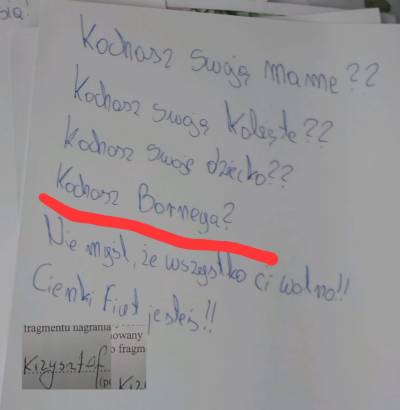 się!
Kochasz swoją mamę??
Kochasz swoją koleżkę??
Kochasz swoje dziecko??
Kochasz Bornega?
Nie myśl, że wszystko ci wolno!!
Cienki Fiut jesteś!!
fragmentu nagrania
nowany
o fragm
Krzysztof
(p
Krz